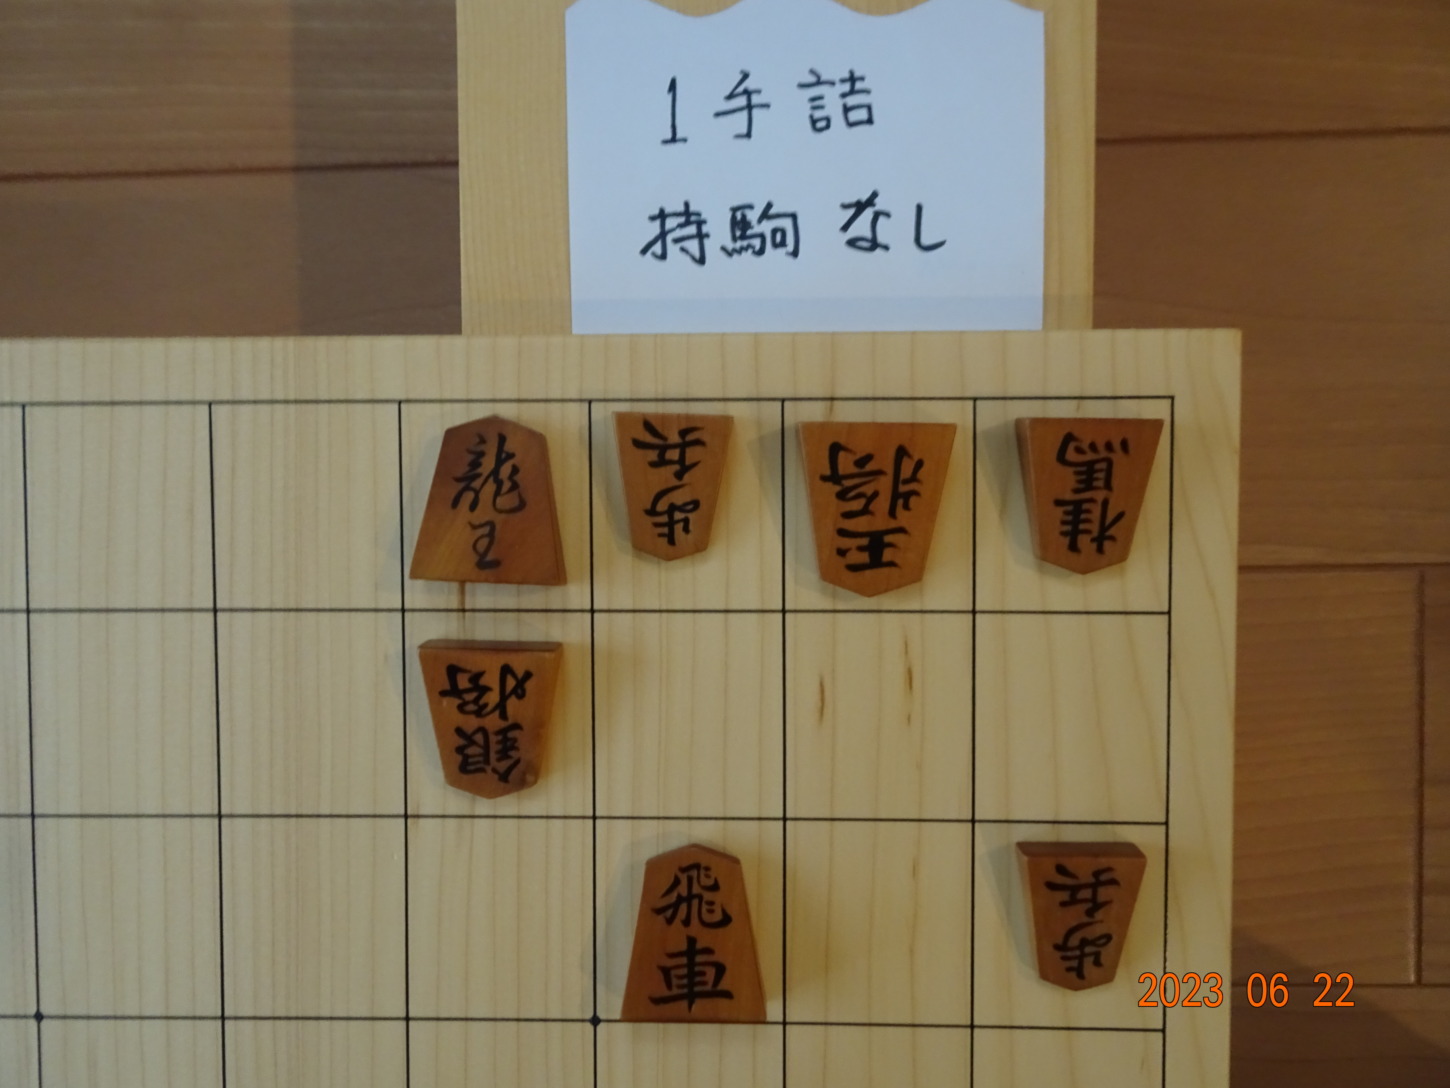 1手詰
持駒 なし
龍王
歩兵
玉将
桂馬
銀将
飛車
歩兵
2023 06 22